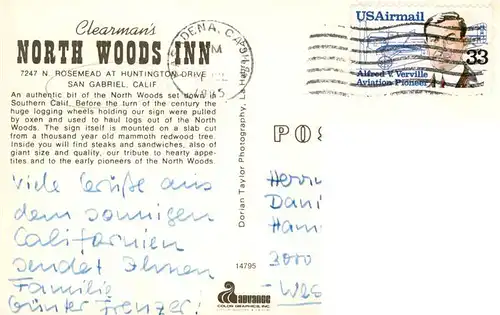 Clearman's
NORTH WOODS INN
7247 N. ROSEMEAD AT HUNTINGTON DRIVE
SAN GABRIEL, CALIF
An authentic bit of the North Woods set down in
Southern Calif. Before the turn of the century the
huge logging wheels holding our sign were pulled
by oxen and used to haul logs out of the North
Woods. The sign itself is mounted on a slab cut
from a thousand year old mammoth redwood tree.
Inside you will find steaks and sandwiches, also of
giant size and quality, our tribute to hearty appe-
tites and to the early pioneers of the North Woods.
Viele Grüße aus
dem sonnigen
Californien
sendet Ihnen
Familie
Günter Frenzer!
Dorian Taylor Photography,
14795
advance
COLOR GRAPHICS, INC.
DENA, CA
USAirmail
33
Alfred V. Verville
Aviation Pioneer
POS
Herrn
Dani
Hann
3000